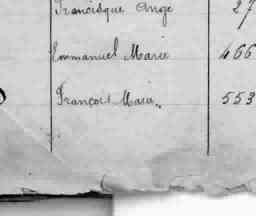 Francisque Ange 27
Emmanuel Marie 466
François Marie 553